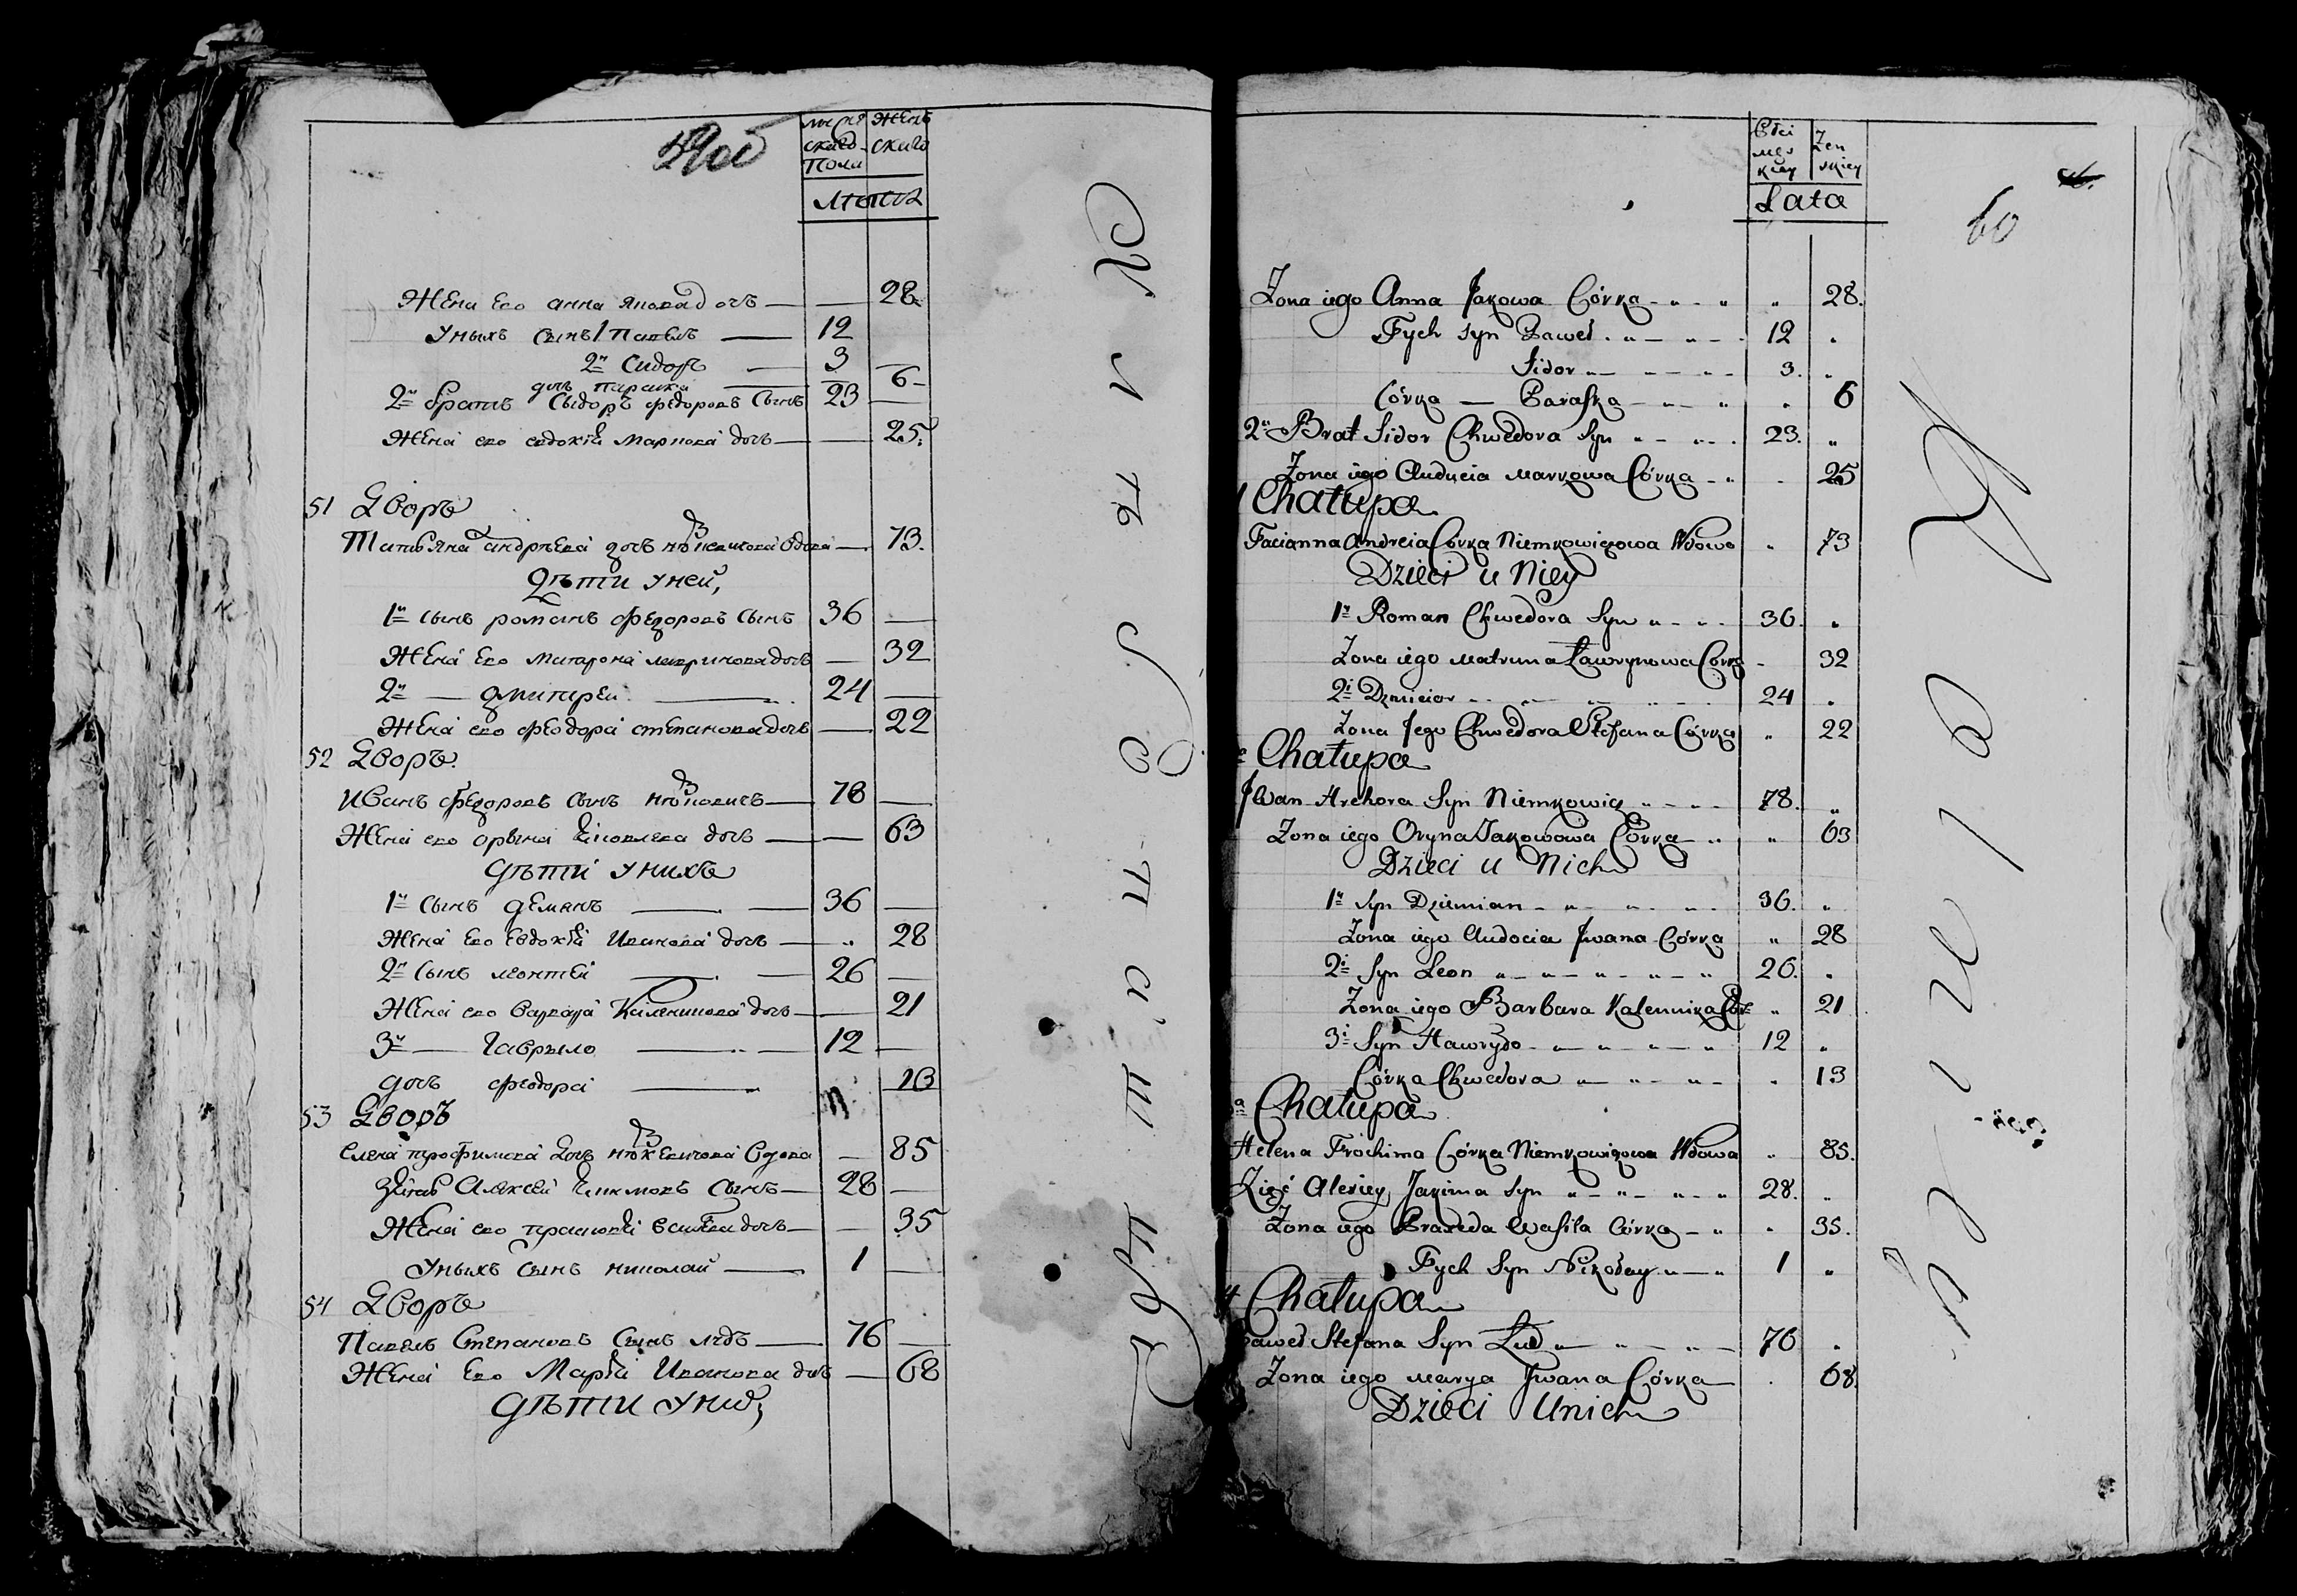 мус
скаго
пола
Жень
скаго
Лѣта
Жена Его анна Якова дочь — — 28
Уныхъ Сынъ 1 Павелъ — 12
2й Сидоръ — 3
дочь параска — 6
2й братъ Сыдоръ федоровъ Сынъ 23 —
Жена его евдокія Маркова дочь — — 25
51 Дворъ
Татьяна андрѣева дочь нѣмковичова вдова — 73.
Дѣти Уней,
1й Сынъ романъ федоровъ Сынъ 36 —
Жена Его Матрона лавринова дочь — 32
2й — дмитрей — 24 —
Жена его феодора степанова дочь — 22
52 Дворъ
Иванъ федоровъ Сынъ нѣмковичъ — 78 —
Жена его орына яковлева дочь — — 63
Дѣти Унихъ
1й Сынъ демянъ — — 36 —
Жена Его Евдокія Иванова дочь — „ 28
2й Сынъ леонтей — — 26 —
Жена его варвара Каленикова дочь — — 21
3й — Гаврыло — — 12 —
дочь феодора — 13
53 Дворъ
Елена трофимова дочь нѣмкевичова вдова — 85
Зять Алексей якимовъ Сынъ — 28 —
Жена его прасковія василева дочь — — 35
Уныхъ Сынъ николай — 1 —
54 Дворъ
Павелъ Степановъ Сынъ лудъ — 76 —
Жена Его Марія Иванова дочь — 68
Дѣти Уних,
Płci
męs
kiey
Żen
skiey
Lata
60
Żona iego Anna Jakowa Córka - „ - „ „ 28.
Tych syn Paweł . „ — „ — . 12 „
Sidor „ — — „ — 3. „
Córka — Paraska — „ — „ „ 6
2i Brat Sidor Chwedora Syn „ — „ — . 23. „
Żona iego Auducia Markowa Córka - „ - 25
Chałupa
Tacianna Andreia Córka Niemkowiczowa Wdowa „ 73
Dzieci u Niey
1y Roman Chwedora Syn „ - „ - 36. „
Żona iego Matruna Ławrynowa Córka - 32
2i Dzmicior - „ - „ - „ - 24 „
Żona Jego Chwedora Stefana Córka „ 22
Chałupa
Jwan Hrehora Syn Niemkowicz „ - „ - 78. „
Żona iego Oryna Jakowowa Córka - „ „ 63
Dzieci u Nich
1y Syn Dziemian - „ - „ - „ - 36. „
Żona iego Audocia Jwana Córka „ 28
2i Syn Leon „ — „ — „ — „ — „ 26. „
Żona iego Barbara Kalennika Cór „ 21
3i Syn Hawryło - „ — „ — „ — „ 12 „
Córka Chwedora „ — „ — „ — „ 13
Chałupa
Helena Trochima Córka Niemkowiczowa Wdowa „ 85.
Zięć Alexiey Jakima Syn „ — „ — „ — „ 28. „
Żona iego Praxeda Wasila Córka — „ „ 35.
Tych Syn Nikołay „ — „ 1 „
Chałupa
Paweł Stefana Syn Lud „ — „ — „ — 76 „
Żona iego Marya Jwana Córka — . 68.
Dzieci Unich